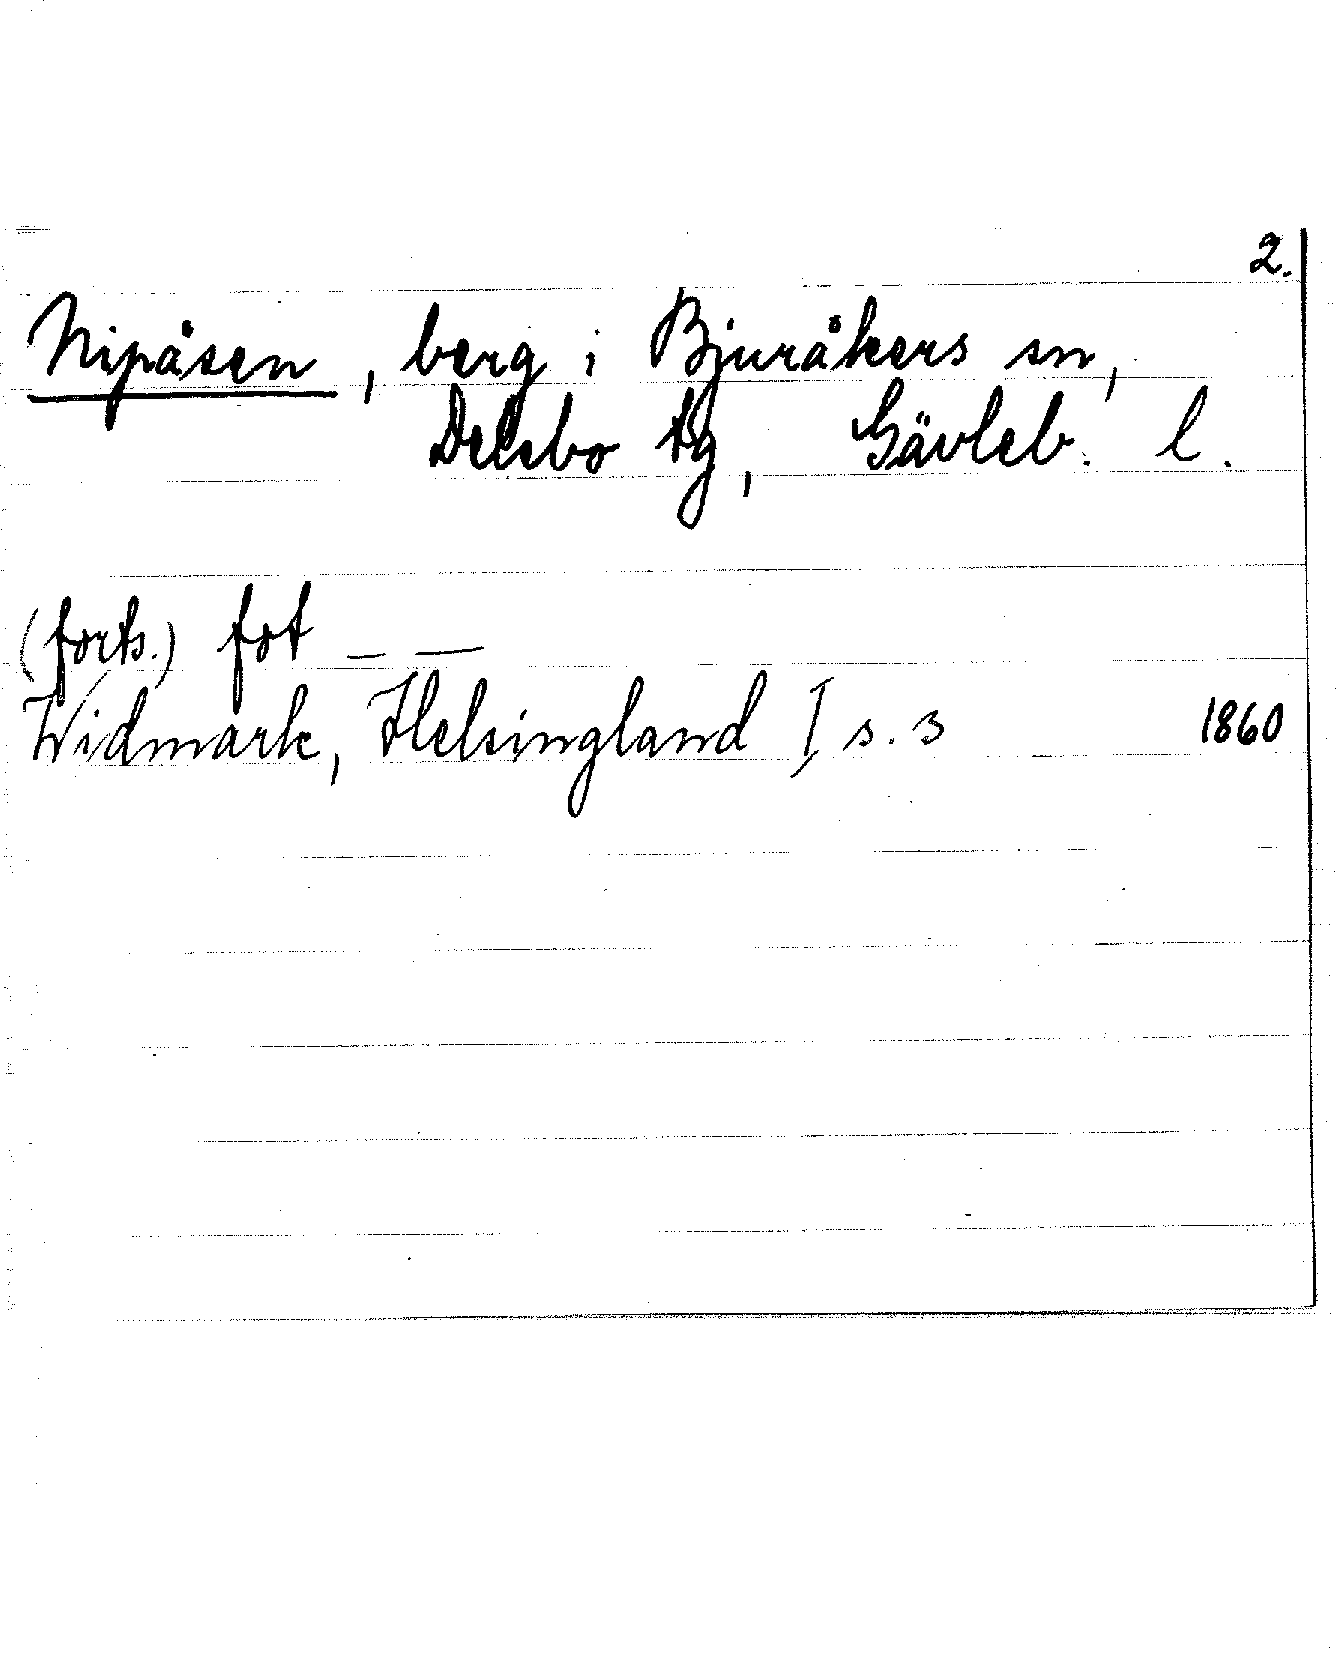 2.
Nipåsen, berg i Bjuråkers sn,
Delsbo tg, Gävleb. l.
(forts.) fot _ _
Widmark, Helsingland I, s. 3 1860